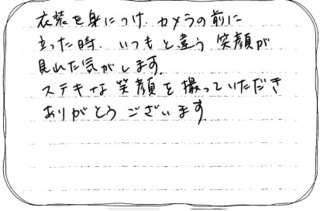 衣装を身につけ カメラの前に
立った時. いつもと違う 笑顔が
見れた気がします.
ステキな 笑顔を 撮っていただき
ありがとう ございます